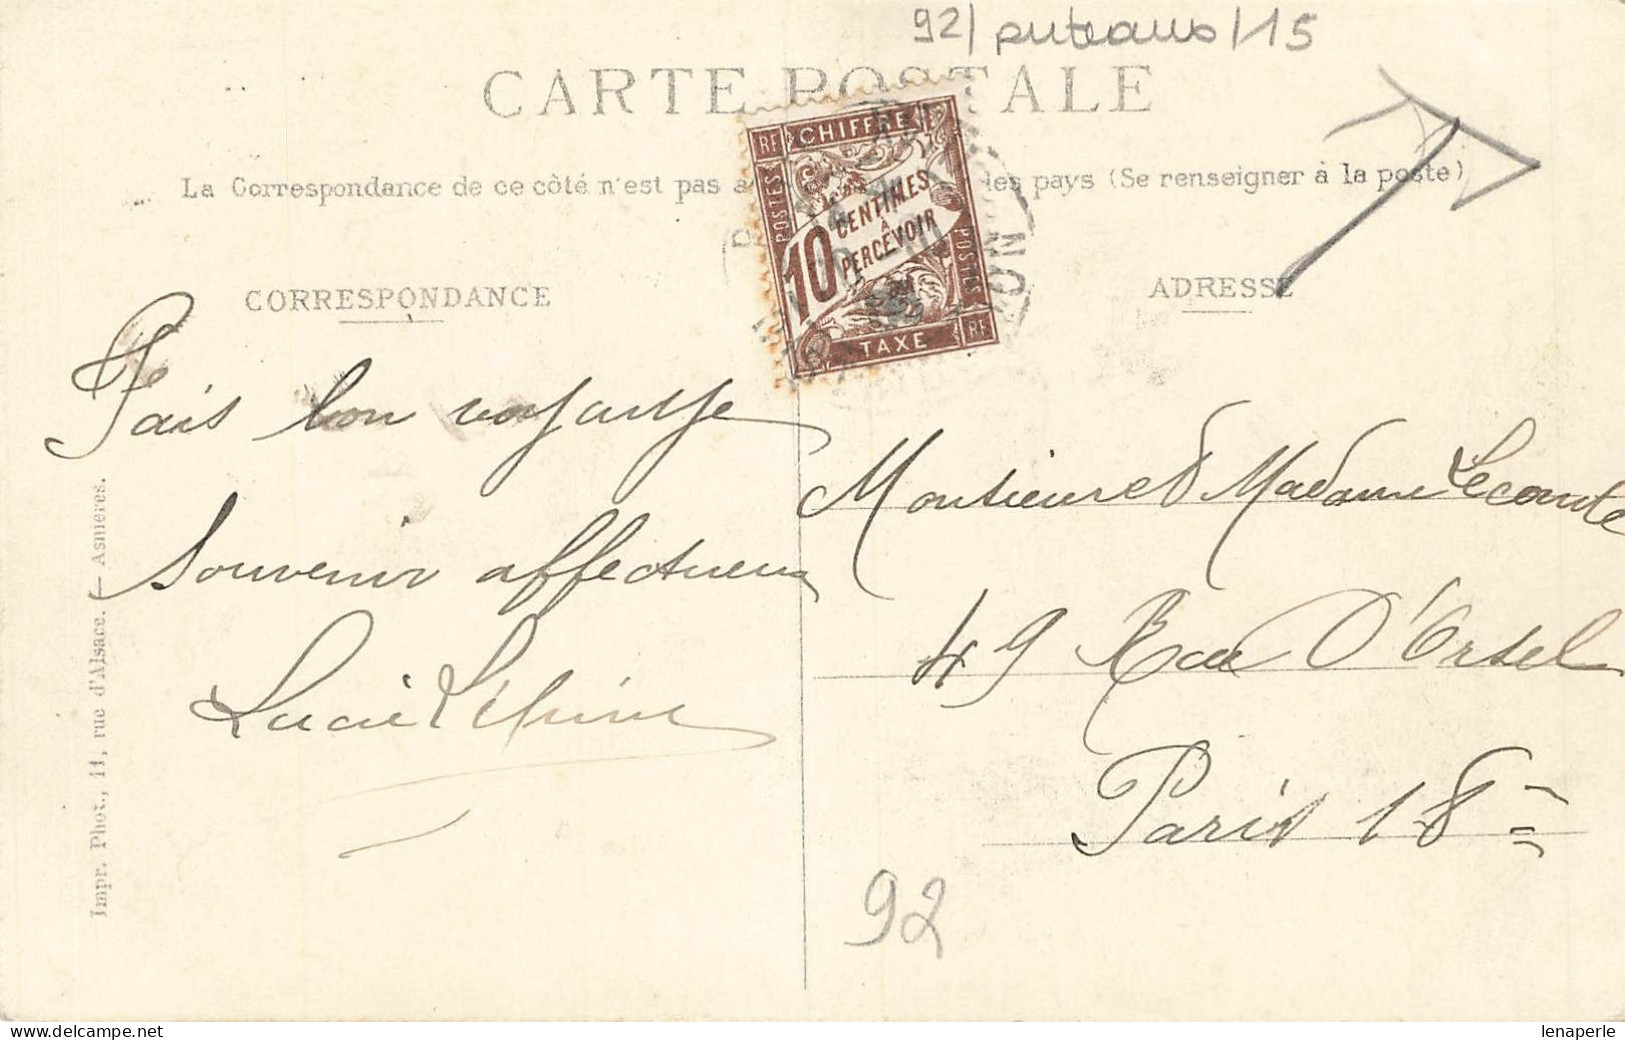 92/ puteaux/15
CARTE POSTALE
La Correspondance de ce côté n'est pas a les pays (Se renseigner à la poste)
RF CHIFFRE
POSTES
10 CENTIMES
À
PERCEVOIR
POSTES
TAXE RF
CORRESPONDANCE
ADRESSE
Fais bon voyage
souvenir affectueux
Lucie
Monsieur et Madame Lecomte
49 Rue d'Orsel
Paris 18
92
Impr. Phot., 11, rue d'Alsace. - Asnières.
delcampe.net
lenaperle